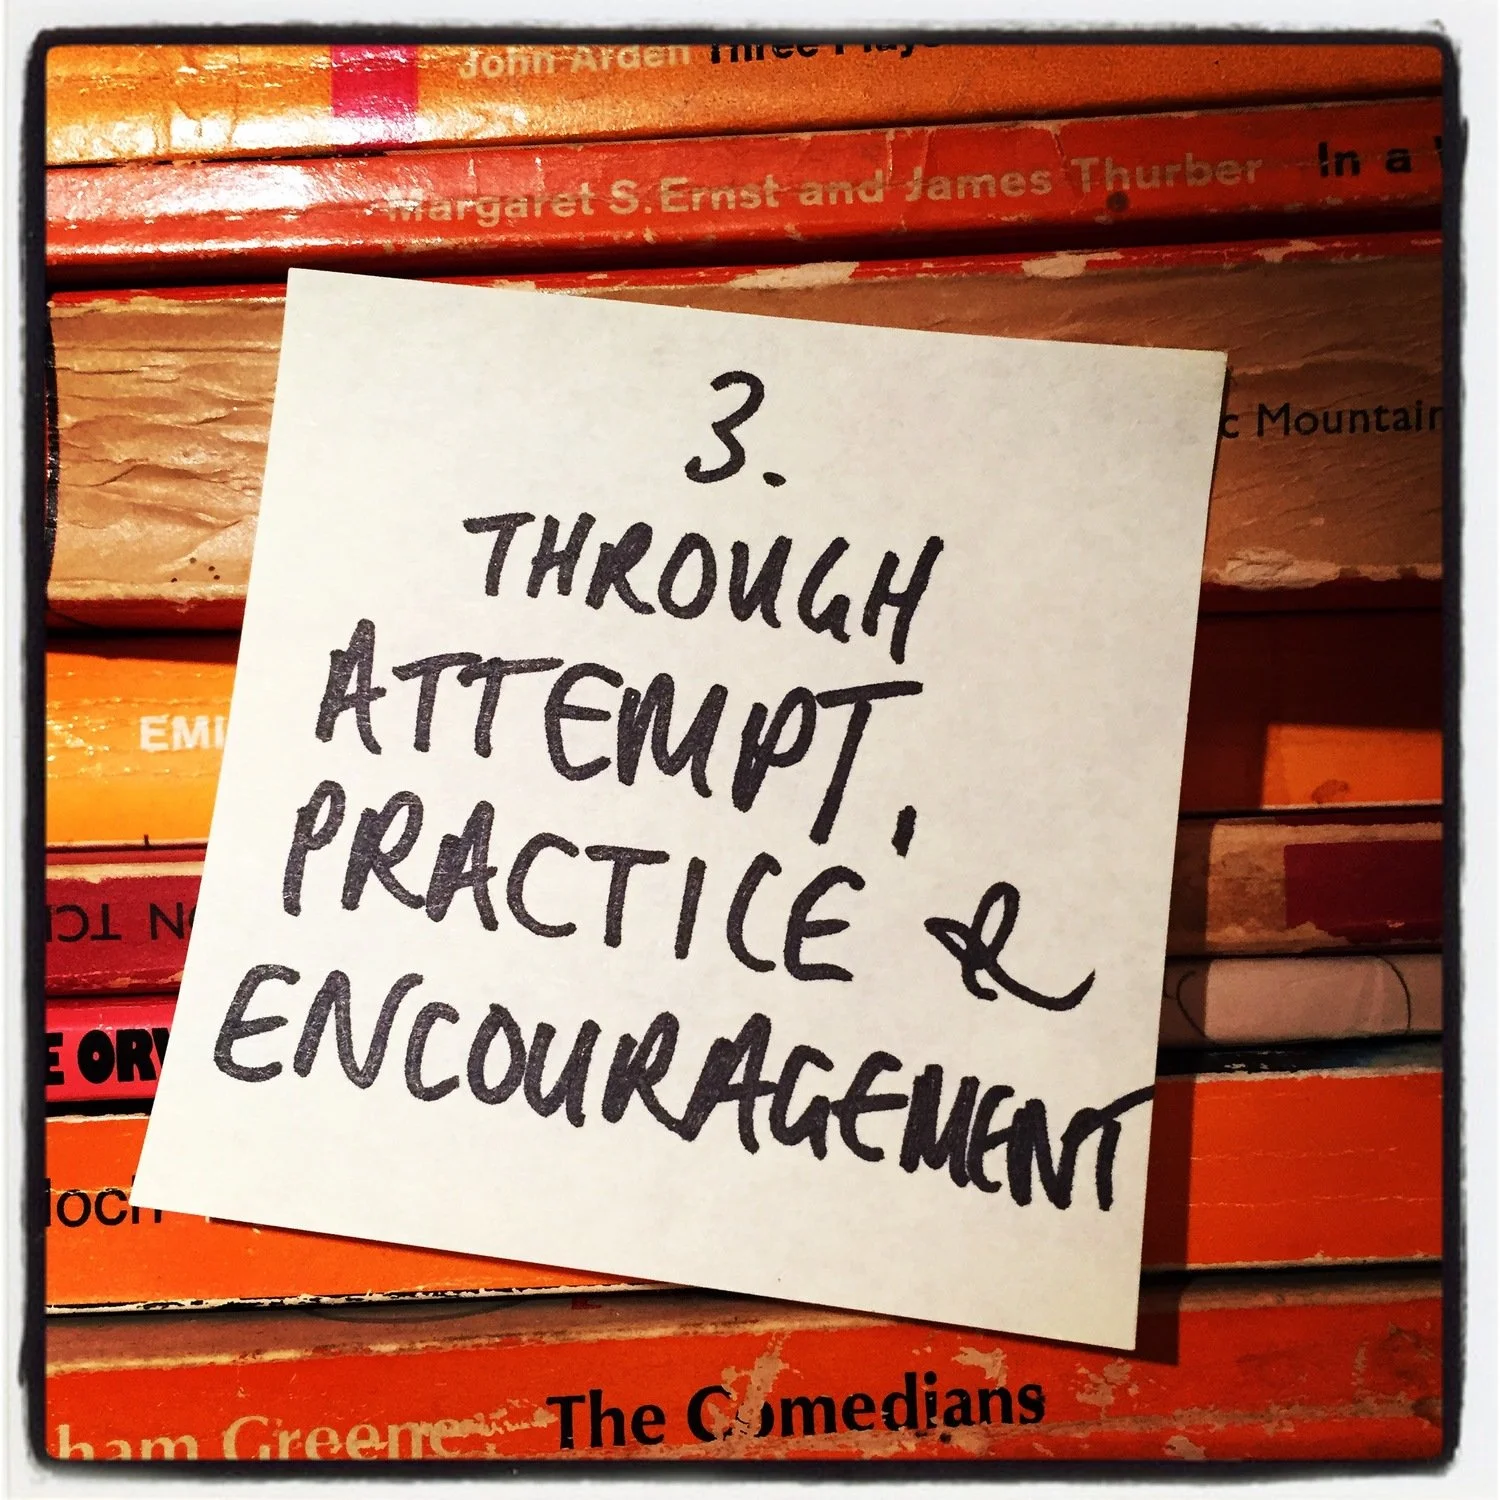 John Arden Three Plays
Margaret S. Ernst and James Thurber In a
c Mountain
3.
THROUGH
ATTEMPT,
PRACTICE &
ENCOURAGEMENT
EMI
E ORW
loch
ham Greene The Comedians